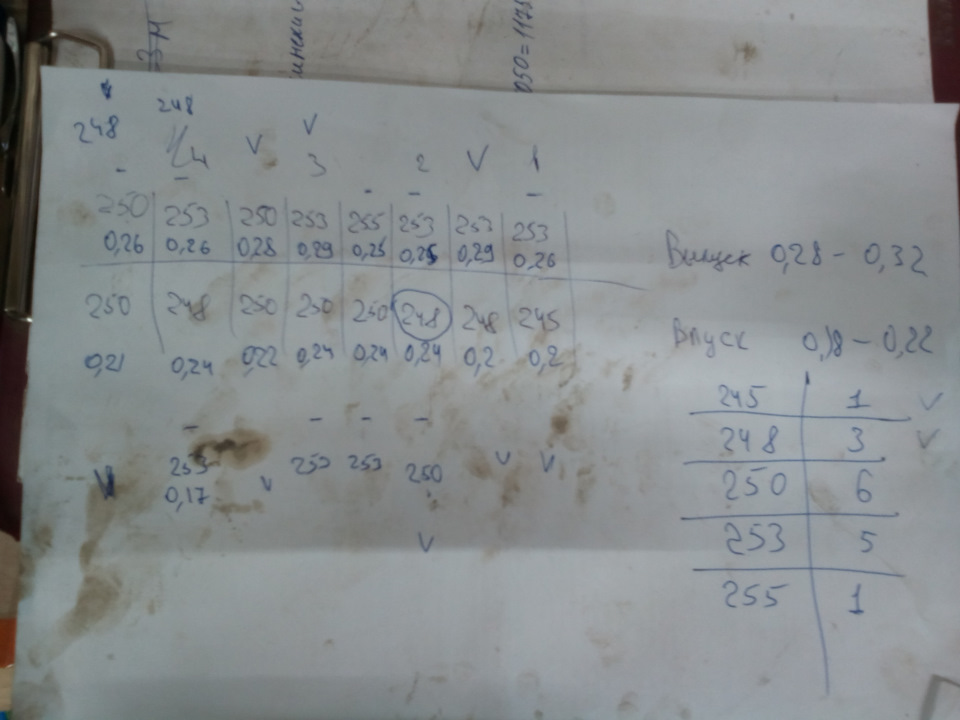 050=1175
248 248
4 V 3 V 2 V 1
250 253 250 253 255 253 253 253
0,26 0,26 0,28 0,29 0,25 0,25 0,29 0,26
250 248 250 250 250 248 248 245
0,21 0,24 0,22 0,24 0,24 0,24 0,2 0,2
- - - -
V 253 V 253 253 250 V V
0,17
V
Випуск 0,28 - 0,32
Впуск 0,18 - 0,22
245 1 V
248 3 V
250 6
253 5
255 1